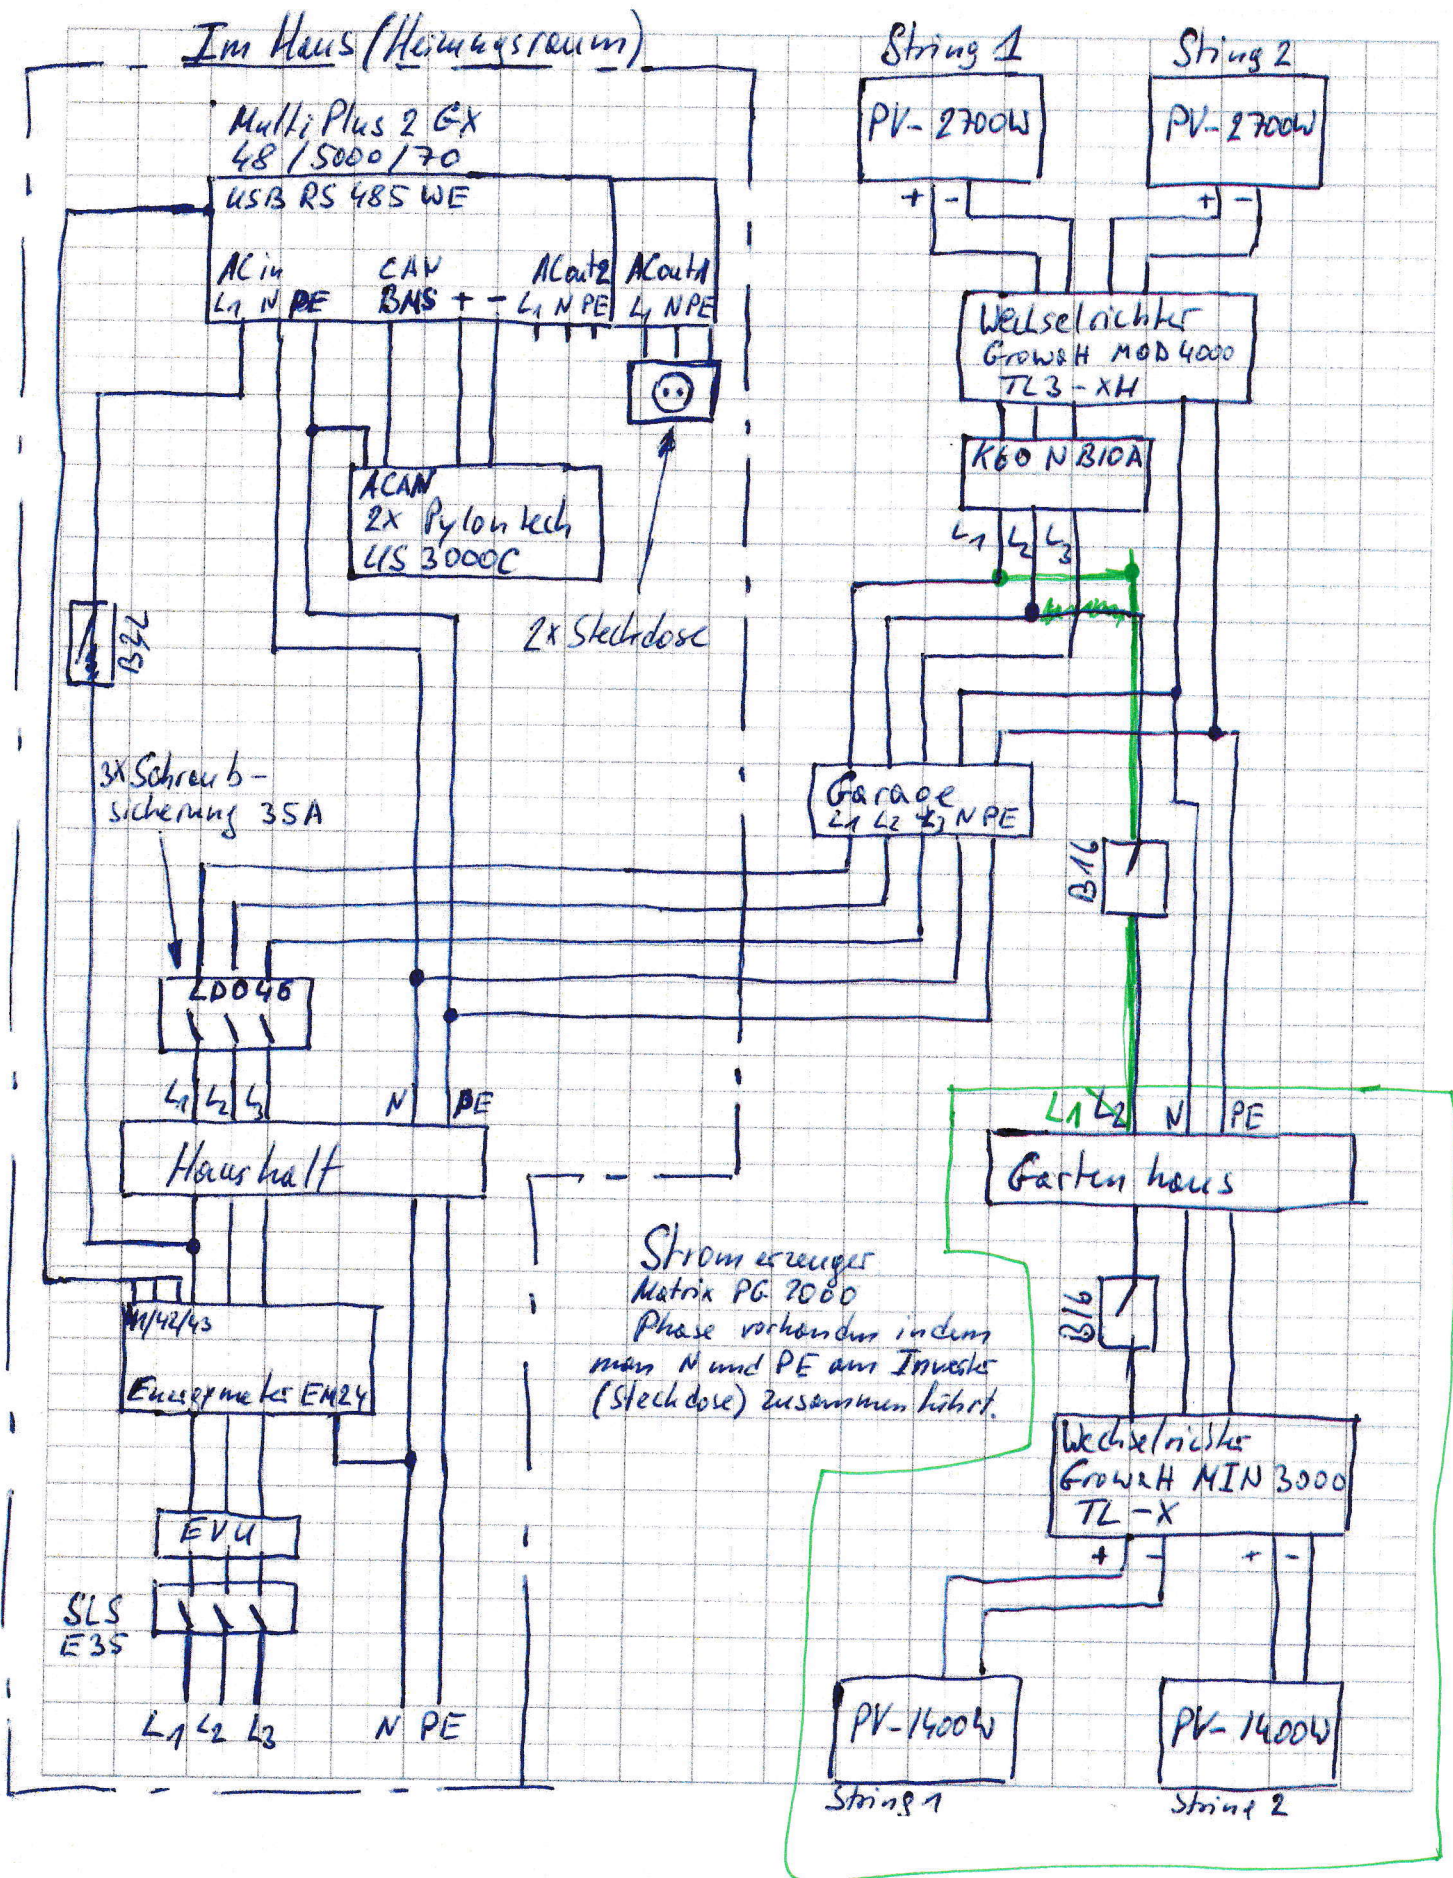 Im Haus (Heizungsraum)
Multi Plus 2 GX
48 / 5000 / 70
USB RS 485 WE
AC in
L1 N PE
CAN
BMS + -
ACout2
L1 N PE
ACout1
L1 N PE
ACAN
2x Pylontech
US 3000C
2x Steckdose
3x Schraub-
sicherung 35A
LD046
L1 L2 L3
N PE
Haushalt
41/42/43
Energymeter EM24
EVU
SLS
E35
L1 L2 L3 N PE
String 1
PV-2700W
+ -
Sting 2
PV-2700W
+ -
Wechselrichter
Growatt MOD 4000
TL3-XH
K60 N B10A
L1 L2 L3
Garage
L1 L2 L3 N PE
B16
L1 L2 N PE
Gartenhaus
B16
Wechselrichter
Growatt MIN 3000
TL-X
+ - + -
PV-1400W
String 1
PV-1400W
String 2
Stromerzeuger
Matrix PG 2000
Phase vorhanden indem
man N und PE am Inverter
(Steckdose) zusammen führt.